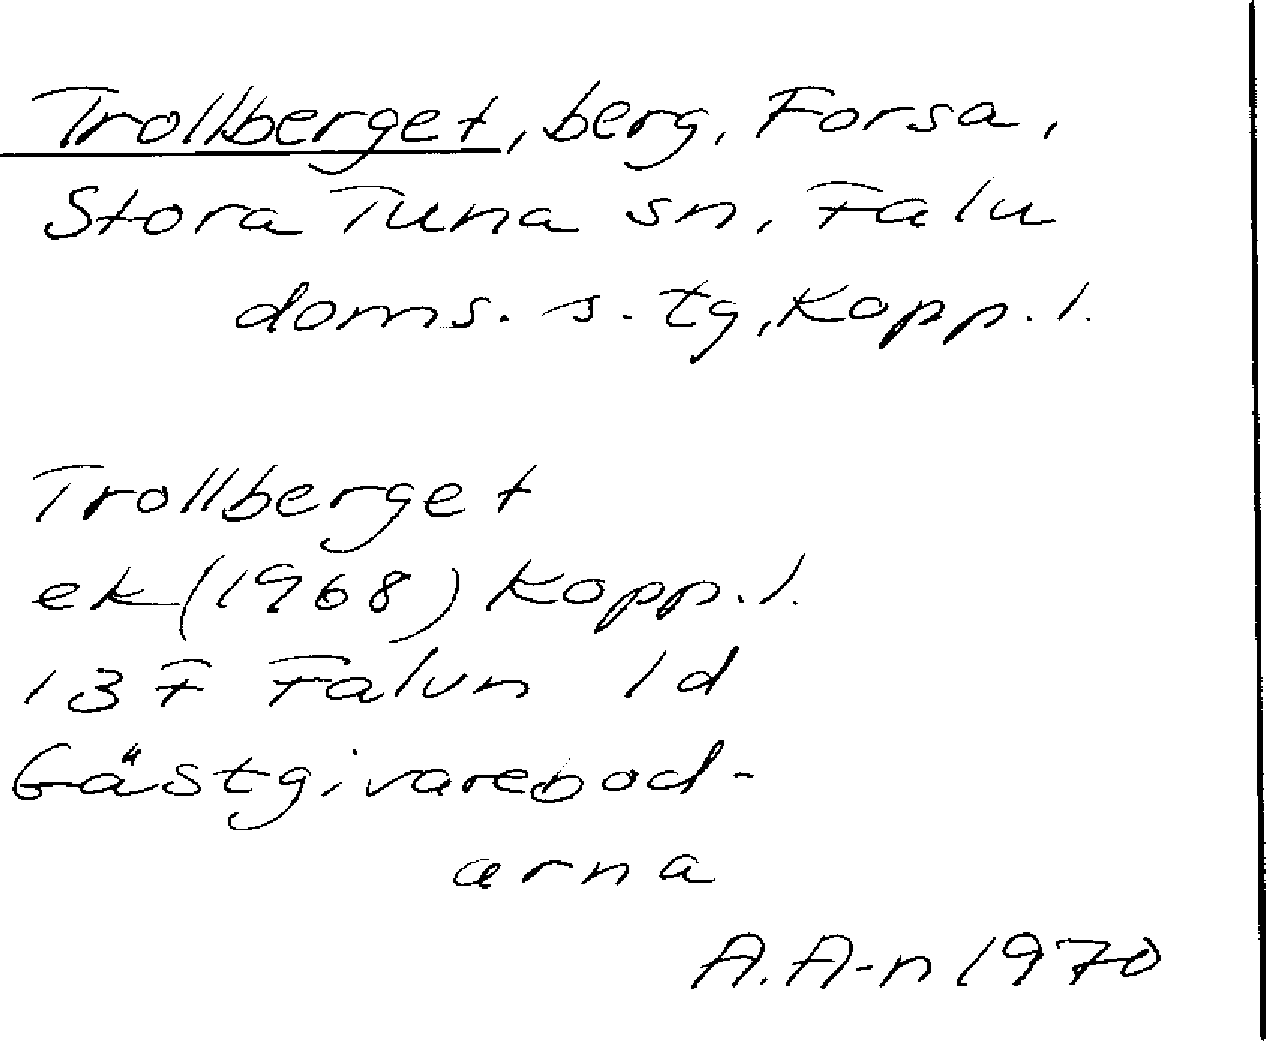 Trollberget, berg, Forsa,
Stora Tuna sn, Falu
doms. s. tg, Kopp. l.
Trollberget
ek (1968) Kopp. l.
13 F Falun 1d
Gästgivarebod-
arna
A. A-n 1970